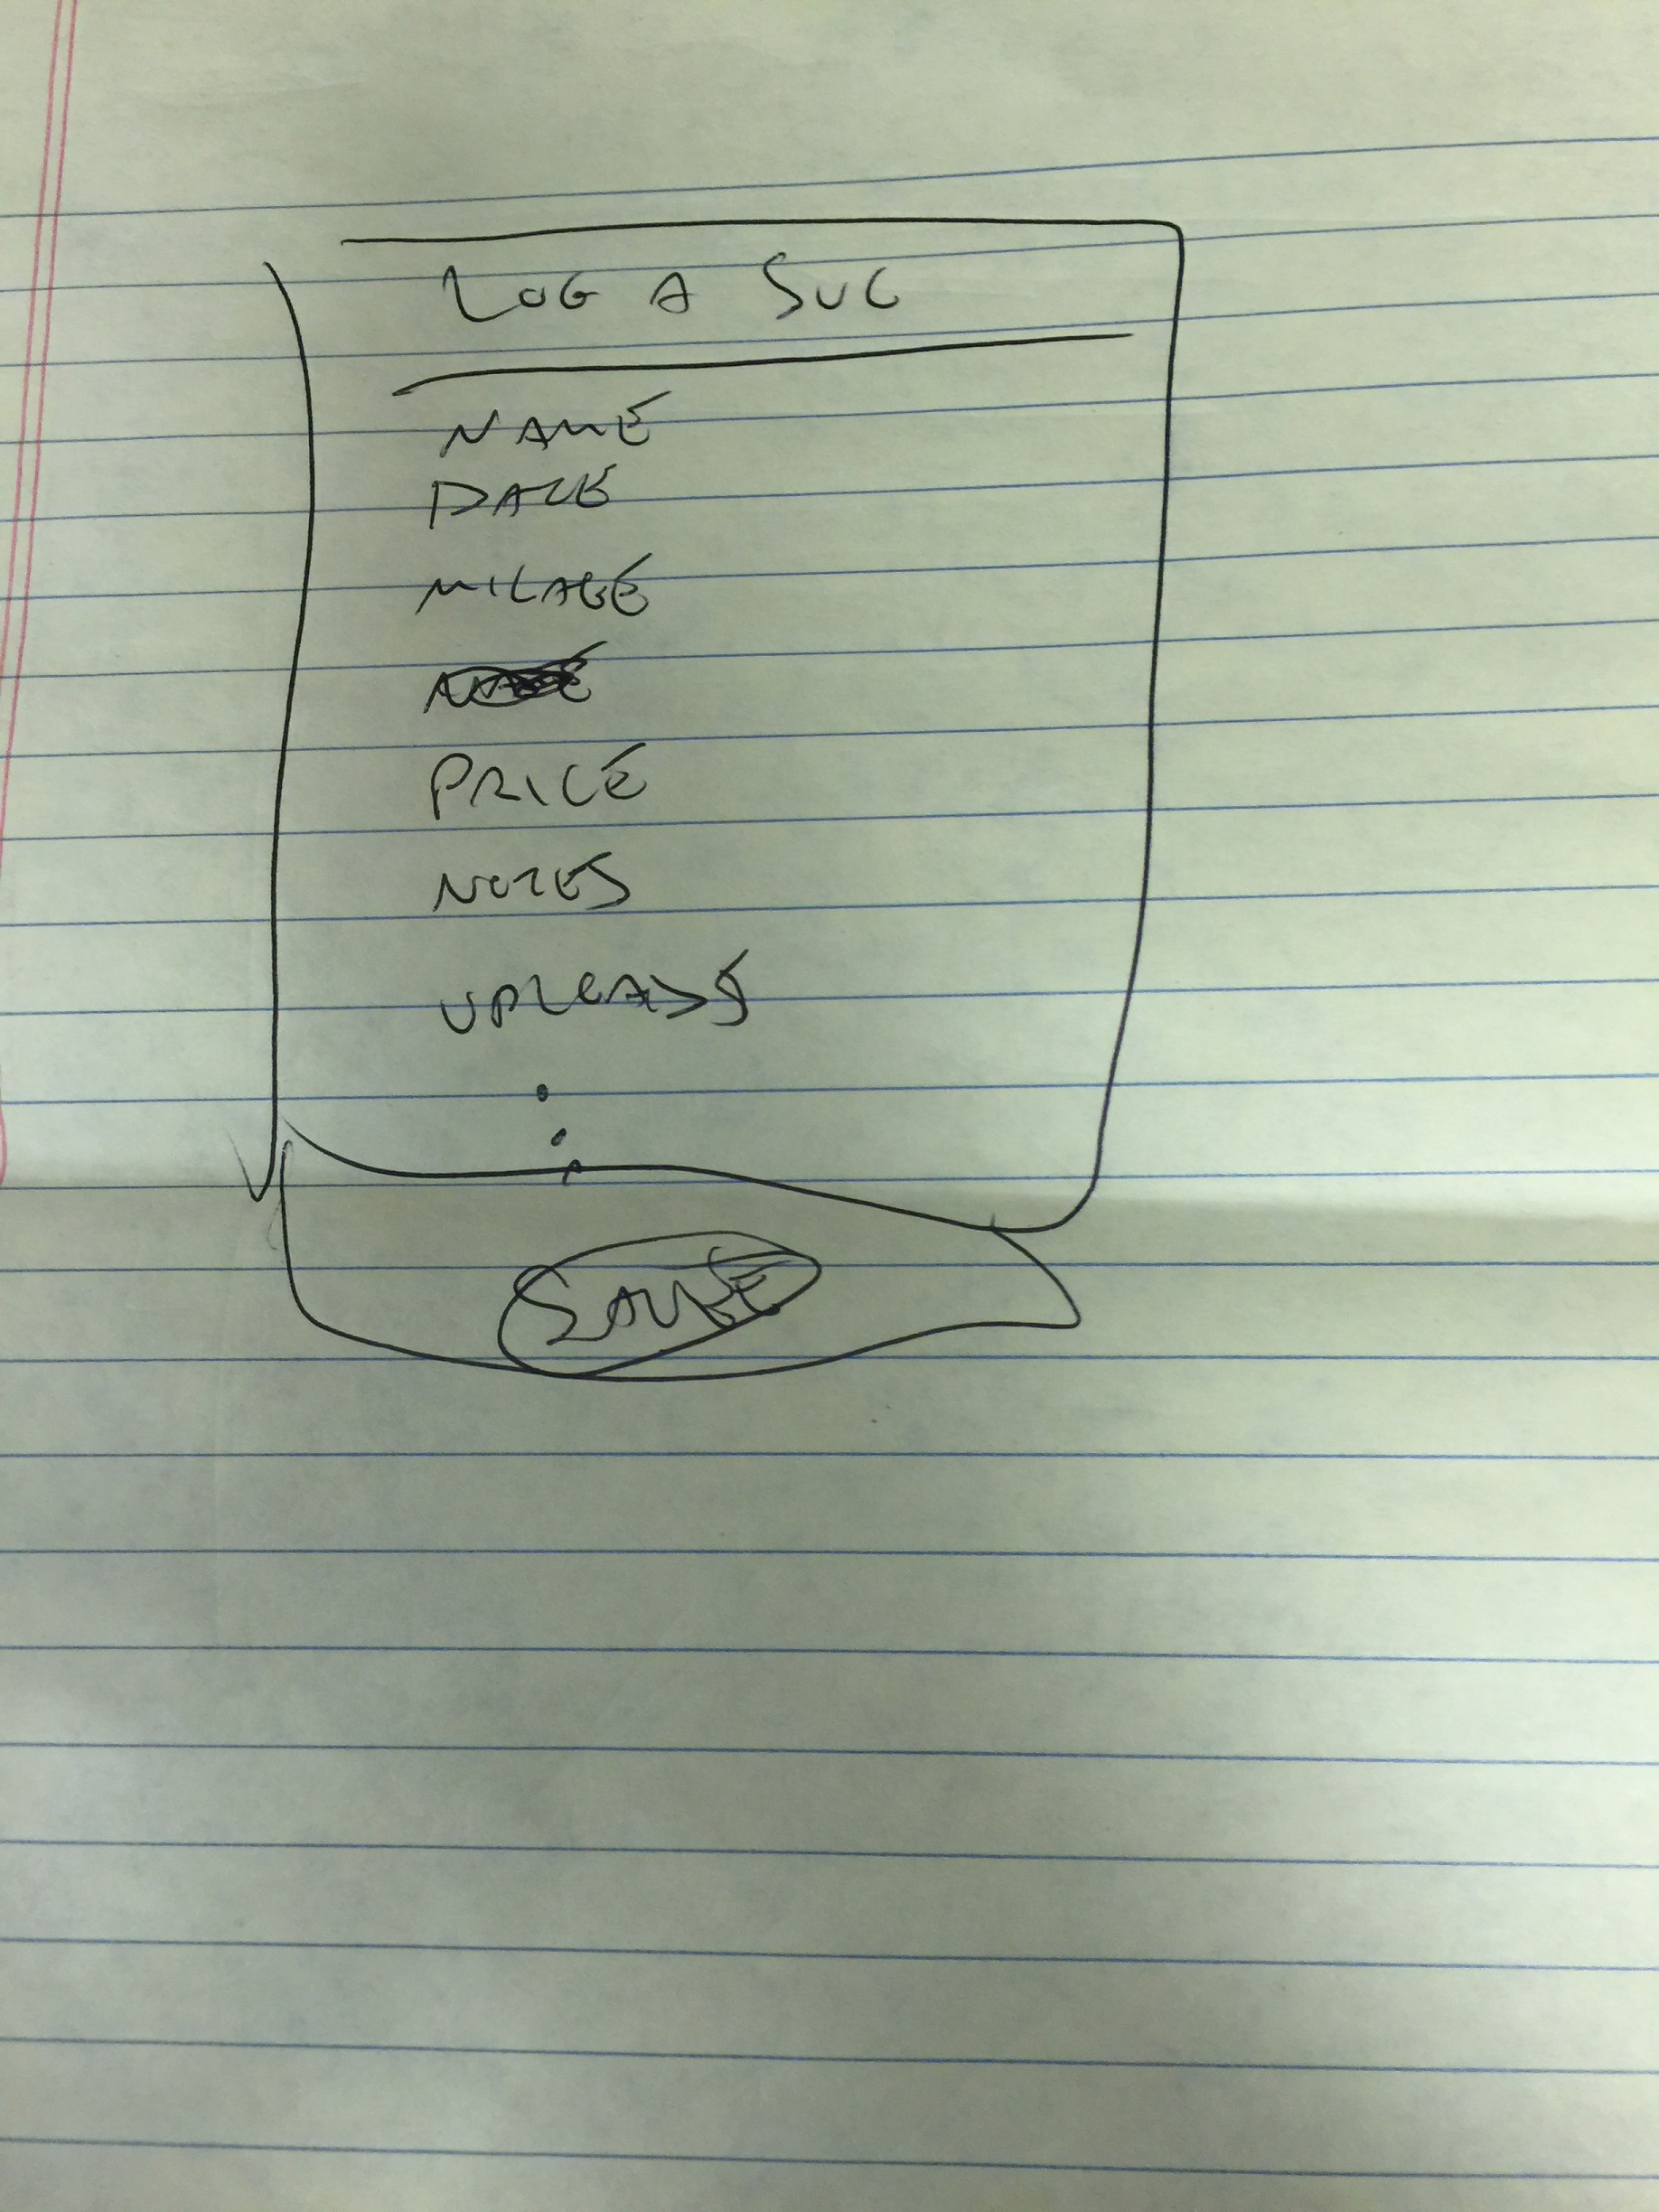 LOG A SVC
NAME
DATE
MILAGE
PRICE
NOTES
UPLOADS
SAVE